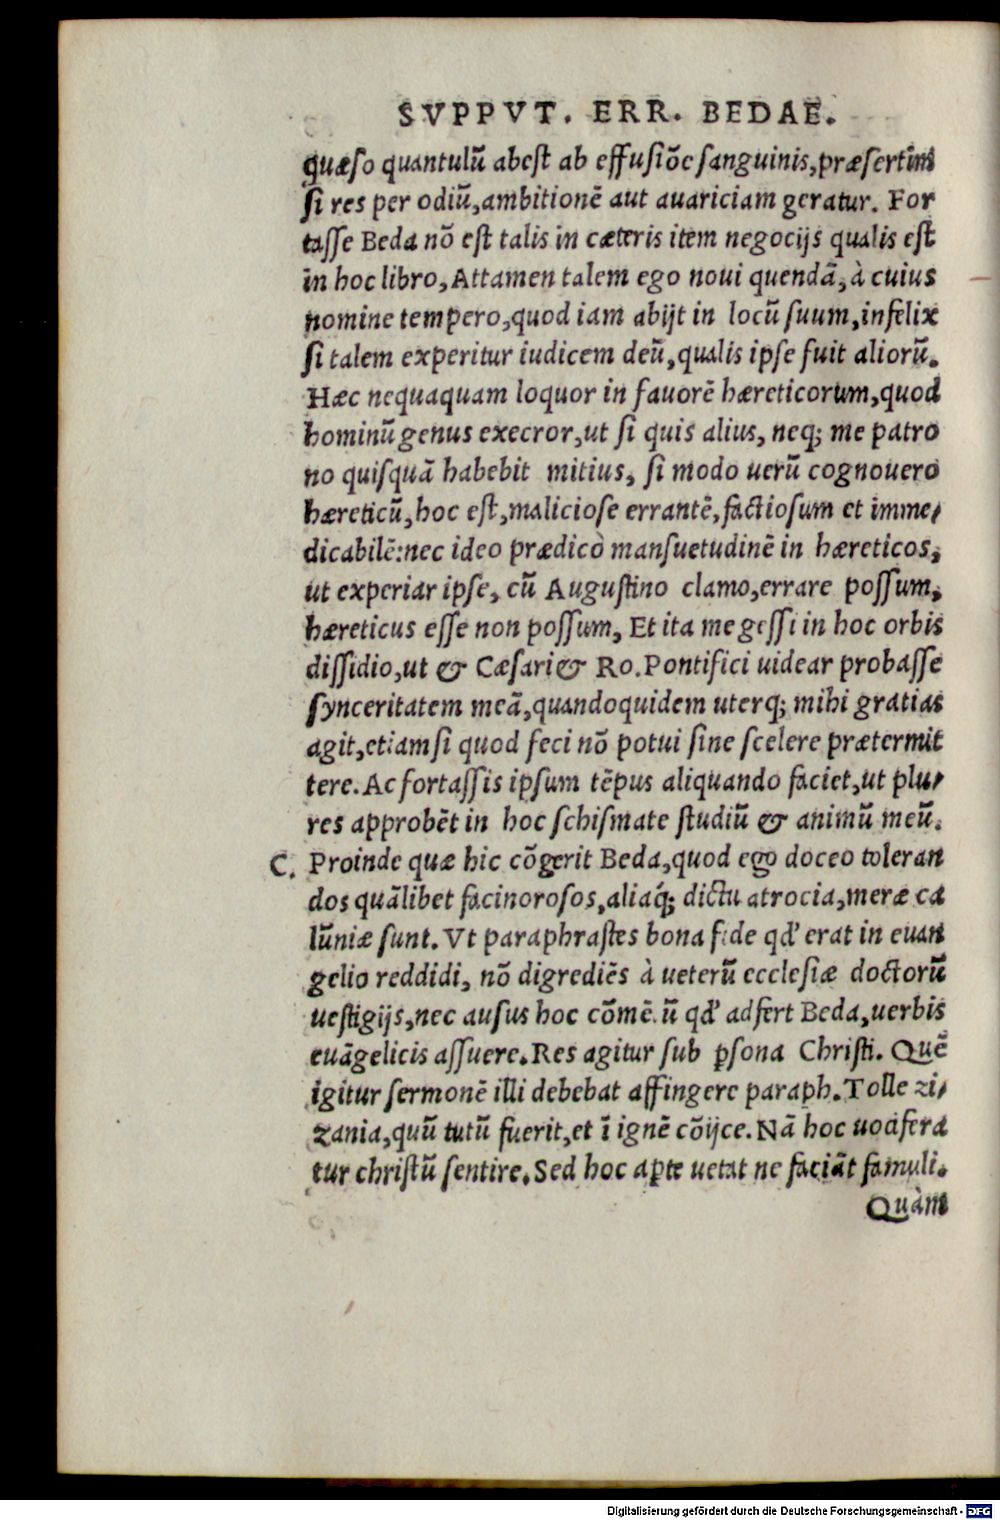 SVPPVT. ERR. BEDAE.
quæso quantulū abest ab effusiōe sanguinis, præsertim
si res per odiū, ambitionē aut auariciam geratur. For
tasse Beda nō est talis in cæteris item negocijs qualis est
in hoc libro, Attamen talem ego noui quendā, à cuius
nomine tempero, quod iam abijt in locū suum, infelix
si talem experitur iudicem deū, qualis ipse fuit aliorū.
Hæc nequaquam loquor in fauorē hæreticorum, quod
hominū genus execror, ut si quis alius, neq; me patro
no quisquā habebit mitius, si modo uerū cognouero
hæreticū, hoc est, maliciose errantē, factiosum et imme/
dicabilē: nec ideo prædico mansuetudinē in hæreticos,
ut experiar ipse, cū Augustino clamo, errare possum,
hæreticus esse non possum, Et ita me gessi in hoc orbis
dissidio, ut & Cæsari & Ro. Pontifici uidear probasse
synceritatem meā, quandoquidem uterq; mihi gratias
agit, etiamsi quod feci nō potui sine scelere prætermit
tere. Ac fortassis ipsum tēpus aliquando faciet, ut plu/
res approbēt in hoc schismate studiū & animū meū.
C. Proinde quæ hic cōgerit Beda, quod ego doceo toleran
dos quālibet facinorosos, aliaq́; dictu atrocia, meræ ca
lūniæ sunt. Vt paraphrastes bona fide qď erat in euan
gelio reddidi, nō digrediēs à ueterū ecclesiæ doctorū
uestigijs, nec ausus hoc cōmē.ū qď adfert Beda, uerbis
euāgelicis assuere. Res agitur sub ꝑsona Christi. Quē
igitur sermonē illi debebat affingere paraph. Tolle zi/
zania, quū tutū fuerit, et ī ignē cōijce. Nā hoc uocifera
tur christū sentire. Sed hoc aꝑte uetat ne faciāt famuli.
Quàm
Digitalisierung gefördert durch die Deutsche Forschungsgemeinschaft - DFG